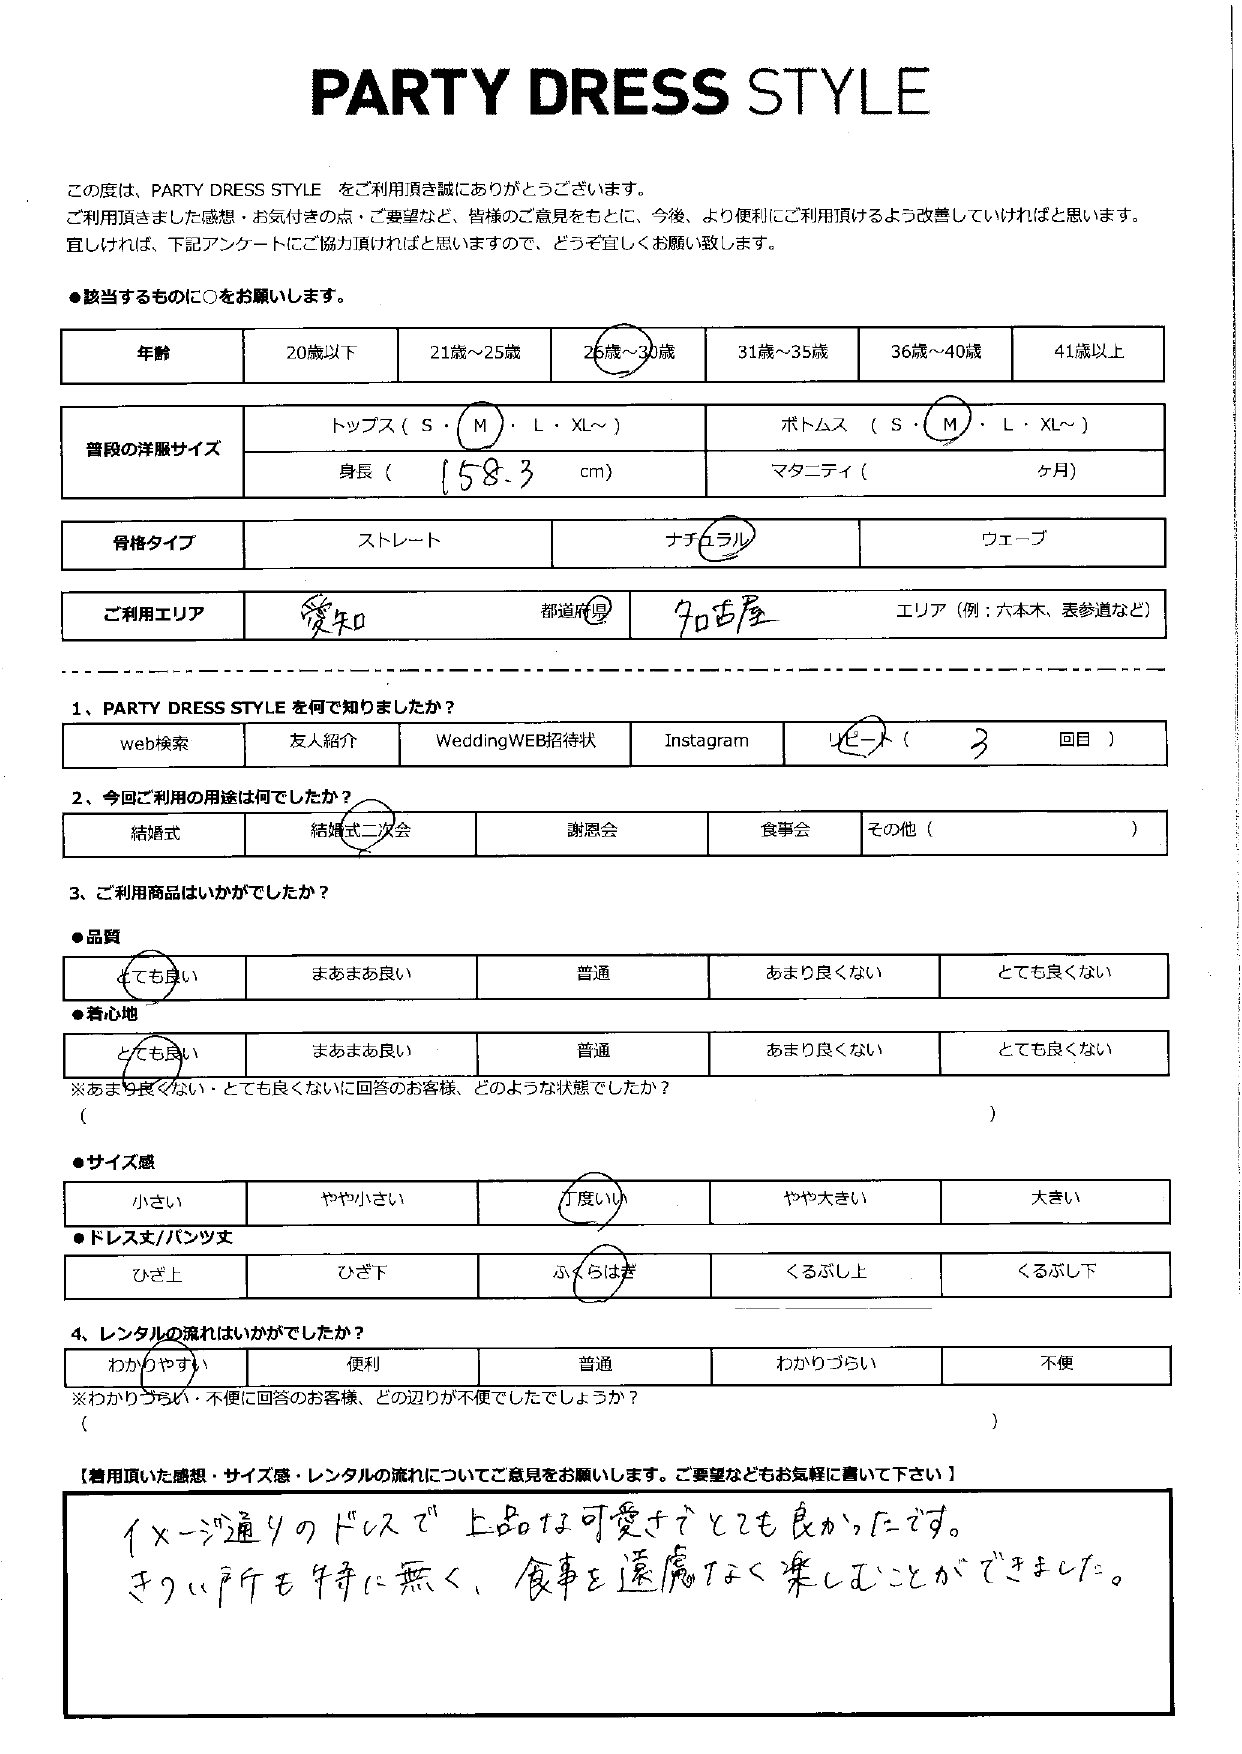 PARTY DRESS STYLE
この度は、PARTY DRESS STYLE　をご利用頂き誠にありがとうございます。
ご利用頂きました感想・お気付きの点・ご要望など、皆様のご意見をもとに、今後、より便利にご利用頂けるよう改善していければと思います。
宜しければ、下記アンケートにご協力頂ければと思いますので、どうぞ宜しくお願い致します。
●該当するものに○をお願いします。
年齢 20歳以下 21歳～25歳 26歳～30歳 31歳～35歳 36歳～40歳 41歳以上
普段の洋服サイズ トップス ( S ・ M ・ L ・ XL～ ) ボトムス ( S ・ M ・ L ・ XL～ )
身長 ( 158.3 cm) マタニティ ( ケ月)
骨格タイプ ストレート ナチュラル ウェーブ
ご利用エリア 愛知 都道府県 名古屋 エリア（例：六本木、表参道など）
1、PARTY DRESS STYLE を何で知りましたか？
web検索 友人紹介 WeddingWEB招待状 Instagram リピート ( 3 回目 )
2、今回ご利用の用途は何でしたか？
結婚式 結婚式二次会 謝恩会 食事会 その他 ( )
3、ご利用商品はいかがでしたか？
●品質
とても良い まあまあ良い 普通 あまり良くない とても良くない
●着心地
とても良い まあまあ良い 普通 あまり良くない とても良くない
※あまり良くない・とても良くないに回答のお客様、どのような状態でしたか？
( )
●サイズ感
小さい やや小さい 丁度いい やや大きい 大きい
●ドレス丈/パンツ丈
ひざ上 ひざ下 ふくらはぎ くるぶし上 くるぶし下
4、レンタルの流れはいかがでしたか？
わかりやすい 便利 普通 わかりづらい 不便
※わかりづらい・不便に回答のお客様、どの辺りが不便でしたでしょうか？
( )
【着用頂いた感想・サイズ感・レンタルの流れについてご意見をお願いします。ご要望などもお気軽に書いて下さい】
イメージ通りのドレスで 上品な可愛さでとても良かったです。
きつい所も特に無く、食事を遠慮なく楽しむことができました。